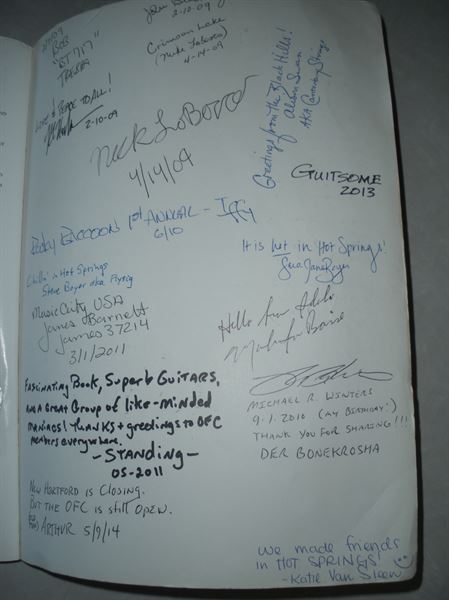 2/1/09
BOB
"RT 717"
TRESSA
John
2-10-09
Crimson Lake
(Mike )
4-14-09
LOVE & PEACE TO ALL!
2-10-09
Nick LoBove
4/14/09
Greetings from the Black Hills!
Alison
AKA
GUITSOME
2013
1st ANNUAL -
6/10
It is hot in Hot Springs!
Chillin' in Hot Springs
Steve Boyer aka
Music City USA
James Barnett
James 37214
3/1/2011
Hello from
FASCINATING BOOK, SUPERB GUITARS,
AND A GREAT GROUP OF like-minded
MANIACS! THANKS + greetings to OFC
members everywhere.
- STANDING -
05-2011
MICHAEL R. WINTERS
9-1-2010 (MY BIRTHDAY!)
THANK YOU FOR SHARING!!!
DER BONEKROSHA
NEW HARTFORD is CLOSING.
BUT THE OFC is still OPEN.
ARTHUR 5/9/14
We made friends
in HOT SPRINGS!
- Katie Van Sleen